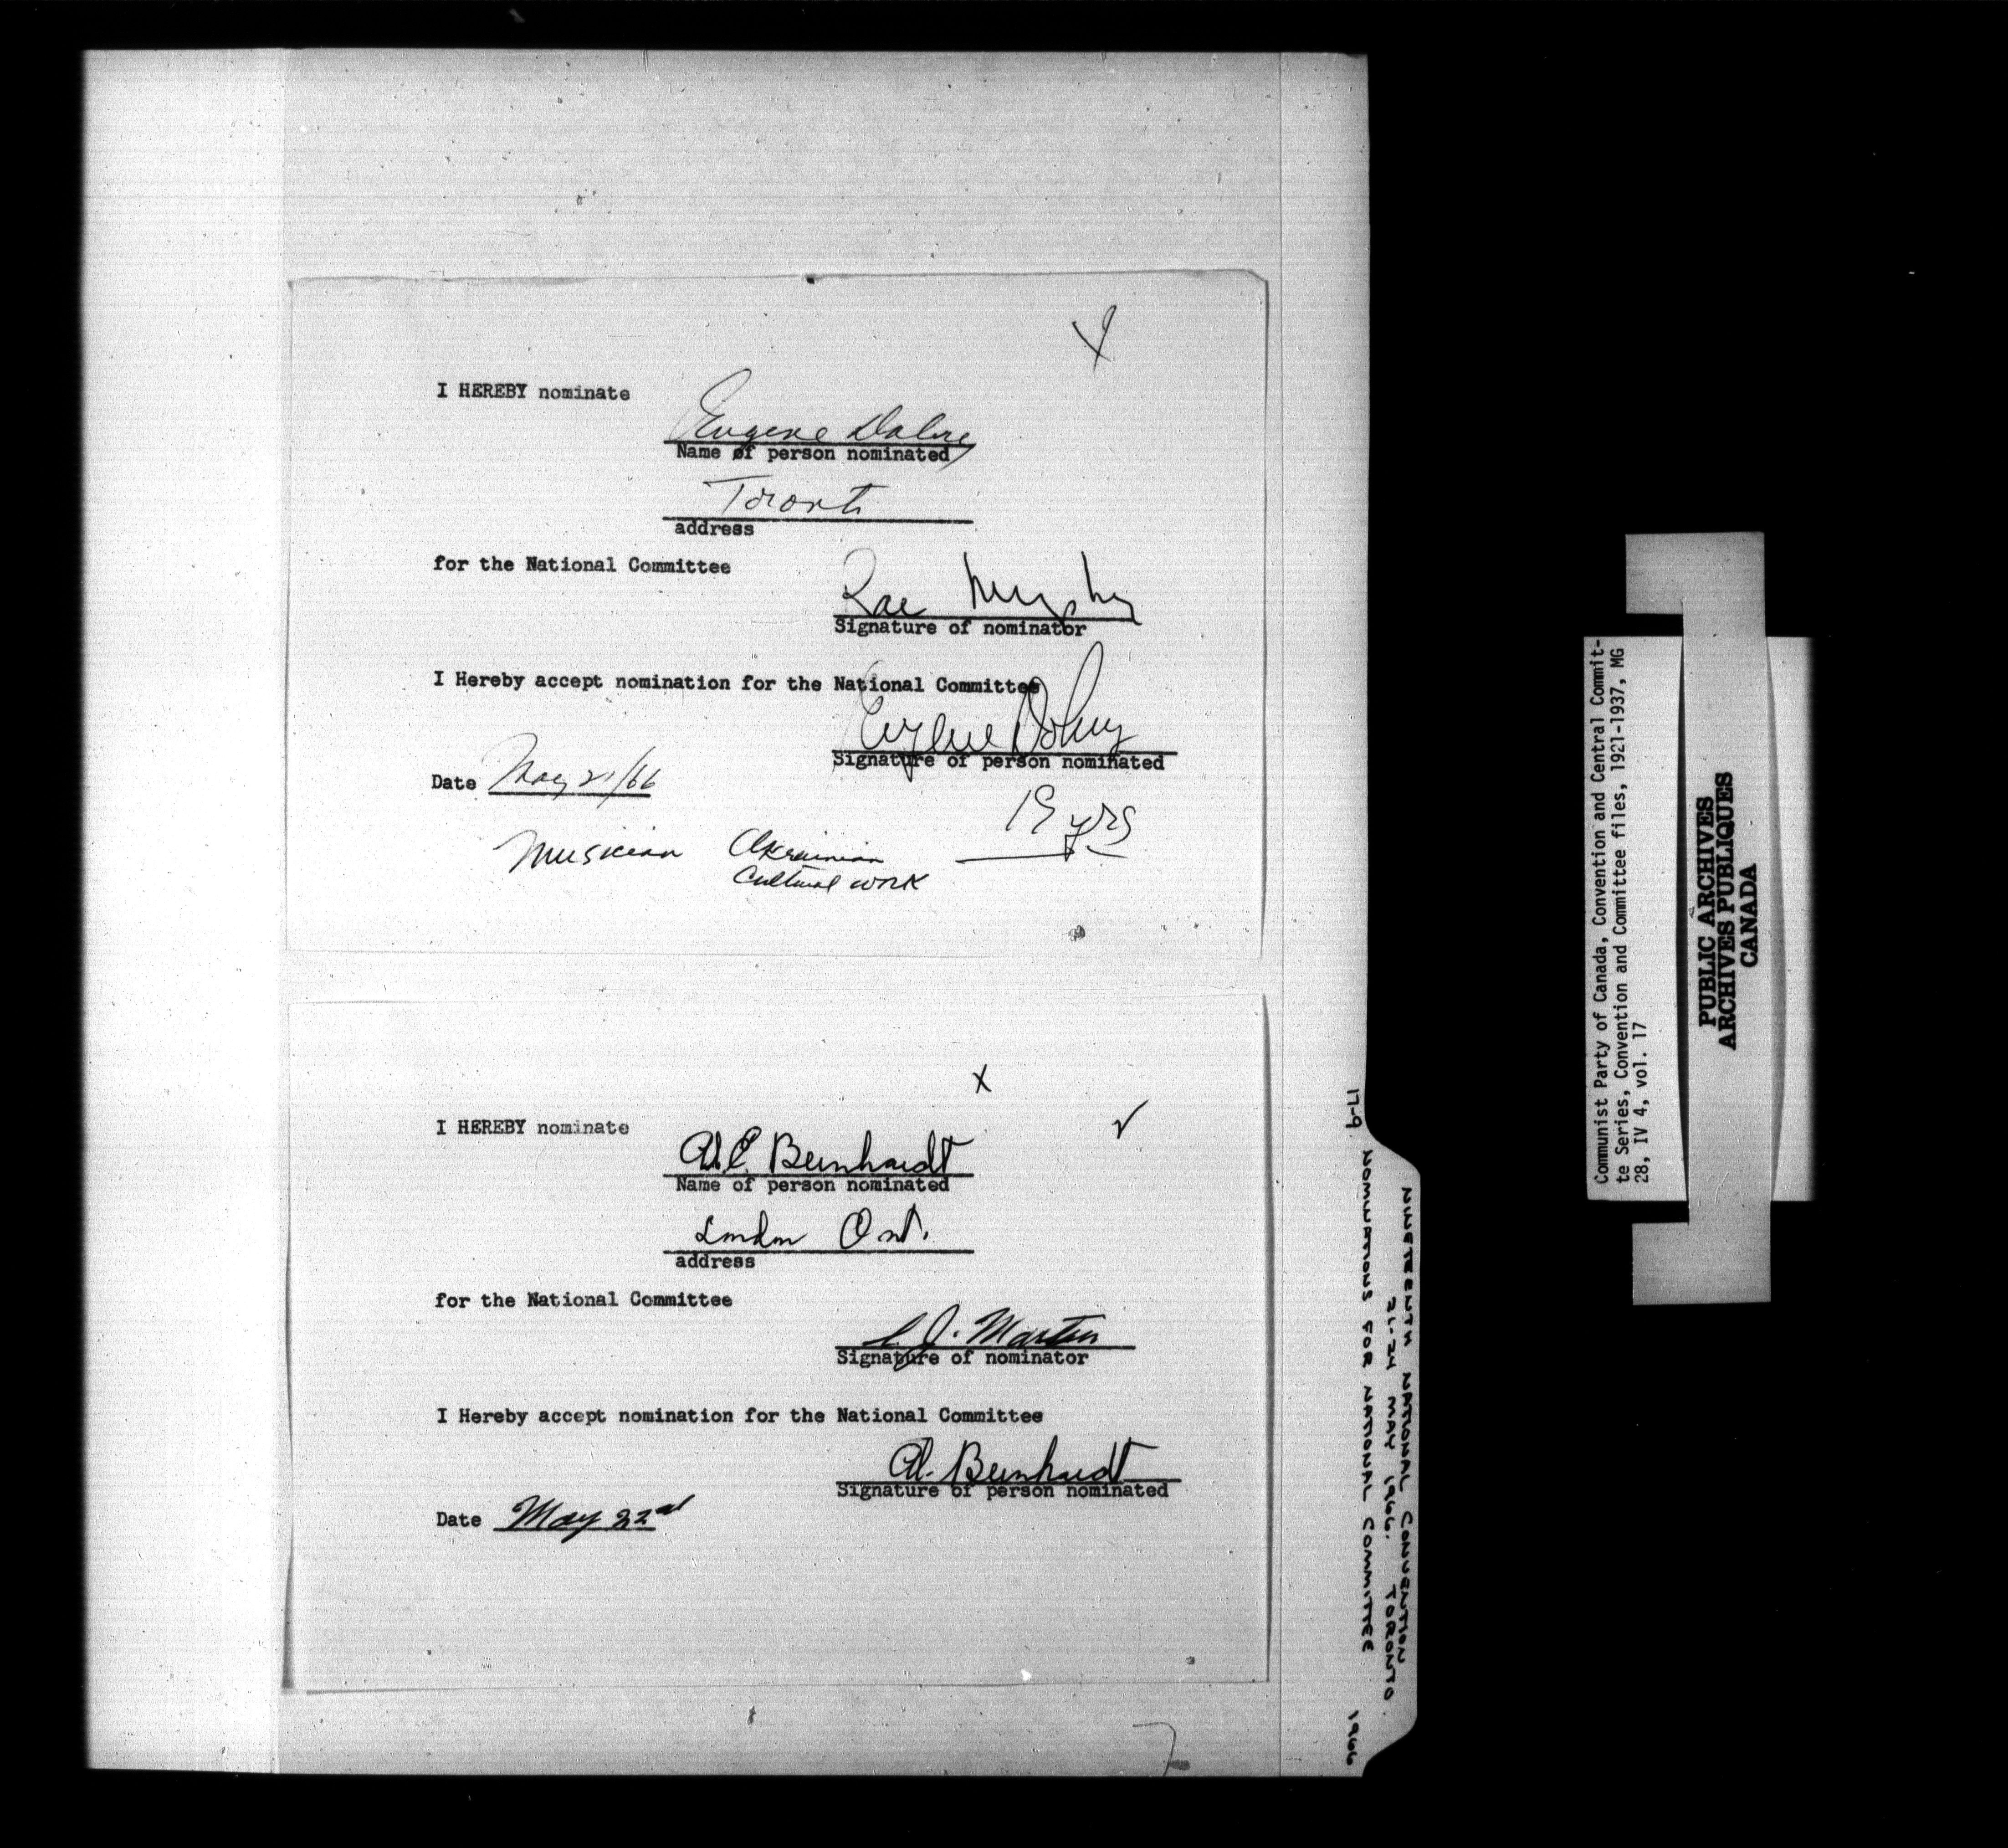 X
I HEREBY nominate
Eugene Dolny
Name of person nominated
Toronto
address
for the National Committee
Rae Murphy
Signature of nominator
I Hereby accept nomination for the National Committee
Eugene Dolny
Signature of person nominated
Date May 21/66
19 yrs
Musician Ukrainian
Cultural work
X
I HEREBY nominate
Al. Bernhardt
Name of person nominated
London Ont.
address
for the National Committee
Martin
Signature of nominator
I Hereby accept nomination for the National Committee
Al. Bernhardt
Signature of person nominated
Date May 22nd
17-9 NOMINATIONS FOR NATIONAL COMMITTEE 1966
NINETEENTH NATIONAL CONVENTION
21-24 MAY 1966. TORONTO.
Communist Party of Canada, Convention and Central Commit-
te Series, Convention and Committee files, 1921-1937, MG
28, IV 4, vol. 17
PUBLIC ARCHIVES
ARCHIVES PUBLIQUES
CANADA